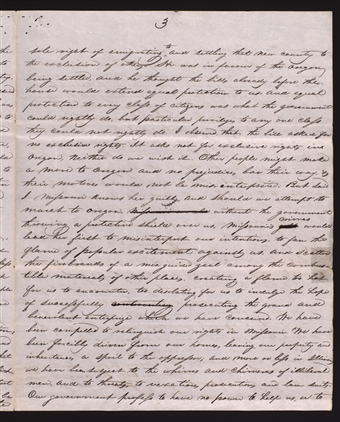 3
sole right of emigrating to and settling that new country to
the exclusion of others. He was in favor of the Oregon
being settled, and he thought the bills already before the
house would extend equal protection to us and equal
protection to every class of citizens was what the government
could rightly do, but particular privileges to any one class
they could not rightly do. I observed that the bill asks for
no exclusive rights. It asks not for exclusive rights in
Oregon, neither do we wish it. Other people might make
a move to Oregon and no prejudices bar their way, &
their motives would not be misinterpreted. But said
I Missouri knows her guilt, and should we attempt to
march to Oregon without the government
throwing a protective shield over us, Missouri's crimes would
lead her first to misinterpret our intentions, to fan the
flame of popular excitement against us, and scatter
the firebrands of a misguided zeal among the combus-
tible materials of other states, creating a flame too hot
for us to encounter, too desolating for us to indulge the hope
of successfully prosecuting the grand and
benevolent enterprize which we have conceived. We have
been compelled to relinquish our rights in Missouri. We have
been forcibly driven from our homes, leaving our property and
inheritances, a spoil to the oppressor, and more or less in Illinois
we have been subject to the whims and caprices of illiberal
men, and to threats, to vexatious prosecutions, and law suits.
Our government profess to have no power to help us, or to